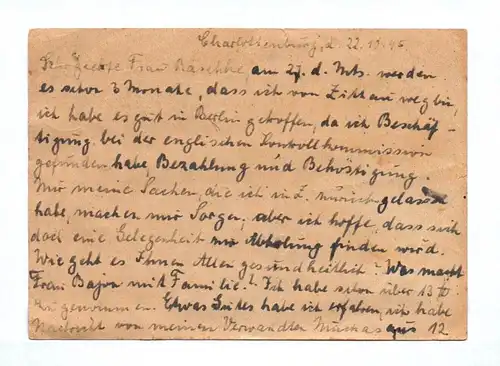 Charlottenburg, d. 22.10.46
Frau Raschke am 27. d. Mts. werden
es schon 3 Monate, dass ich von Zittau weg bin,
ich habe es gut in Berlin getroffen, da ich Beschäf-
tigung bei der englischen Kontrollkommission
gefunden habe Bezahlung und Beköstigung.
Nur meine Sachen, die ich in Z. zurückgelassen
habe, machen mir Sorgen, aber ich hoffe, dass sich
doch eine Gelegenheit zur Abholung finden wird.
Wie geht es Ihnen Allen gesundheitlich? Was macht
Frau Bajon mit Familie? Ich habe schon über 13 ℔
zugenommen. Etwas Gutes habe ich erfahren, ich habe
Nachricht von meinen Verwandten aus 12